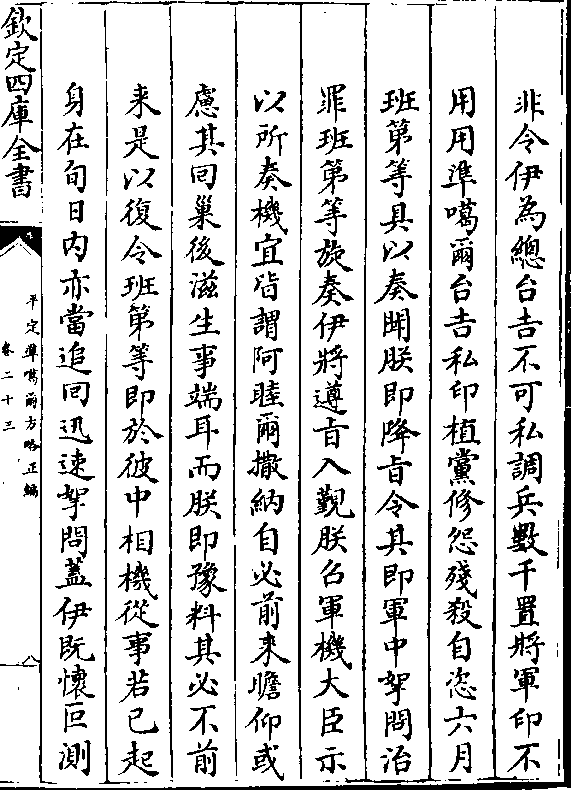 非令伊為總台吉不可私調兵數千置將軍印不
用用準噶爾台吉私印植黨修怨殘殺自恣六月
班第等具以奏聞朕即降旨令其即軍中拏問治
罪班第等旋奏伊將遵旨入覲朕召軍機大臣示
以所奏機宜皆謂阿睦爾撒納自必前来瞻仰或
慮其回巢後滋生事端耳而朕即豫料其必不前
来是以復令班第等即於彼中相機從事若已起
身在旬日内亦當追回迅速拏問蓋伊既懷叵測
欽定四庫全書
平定準噶爾方略正編
卷二十三
八